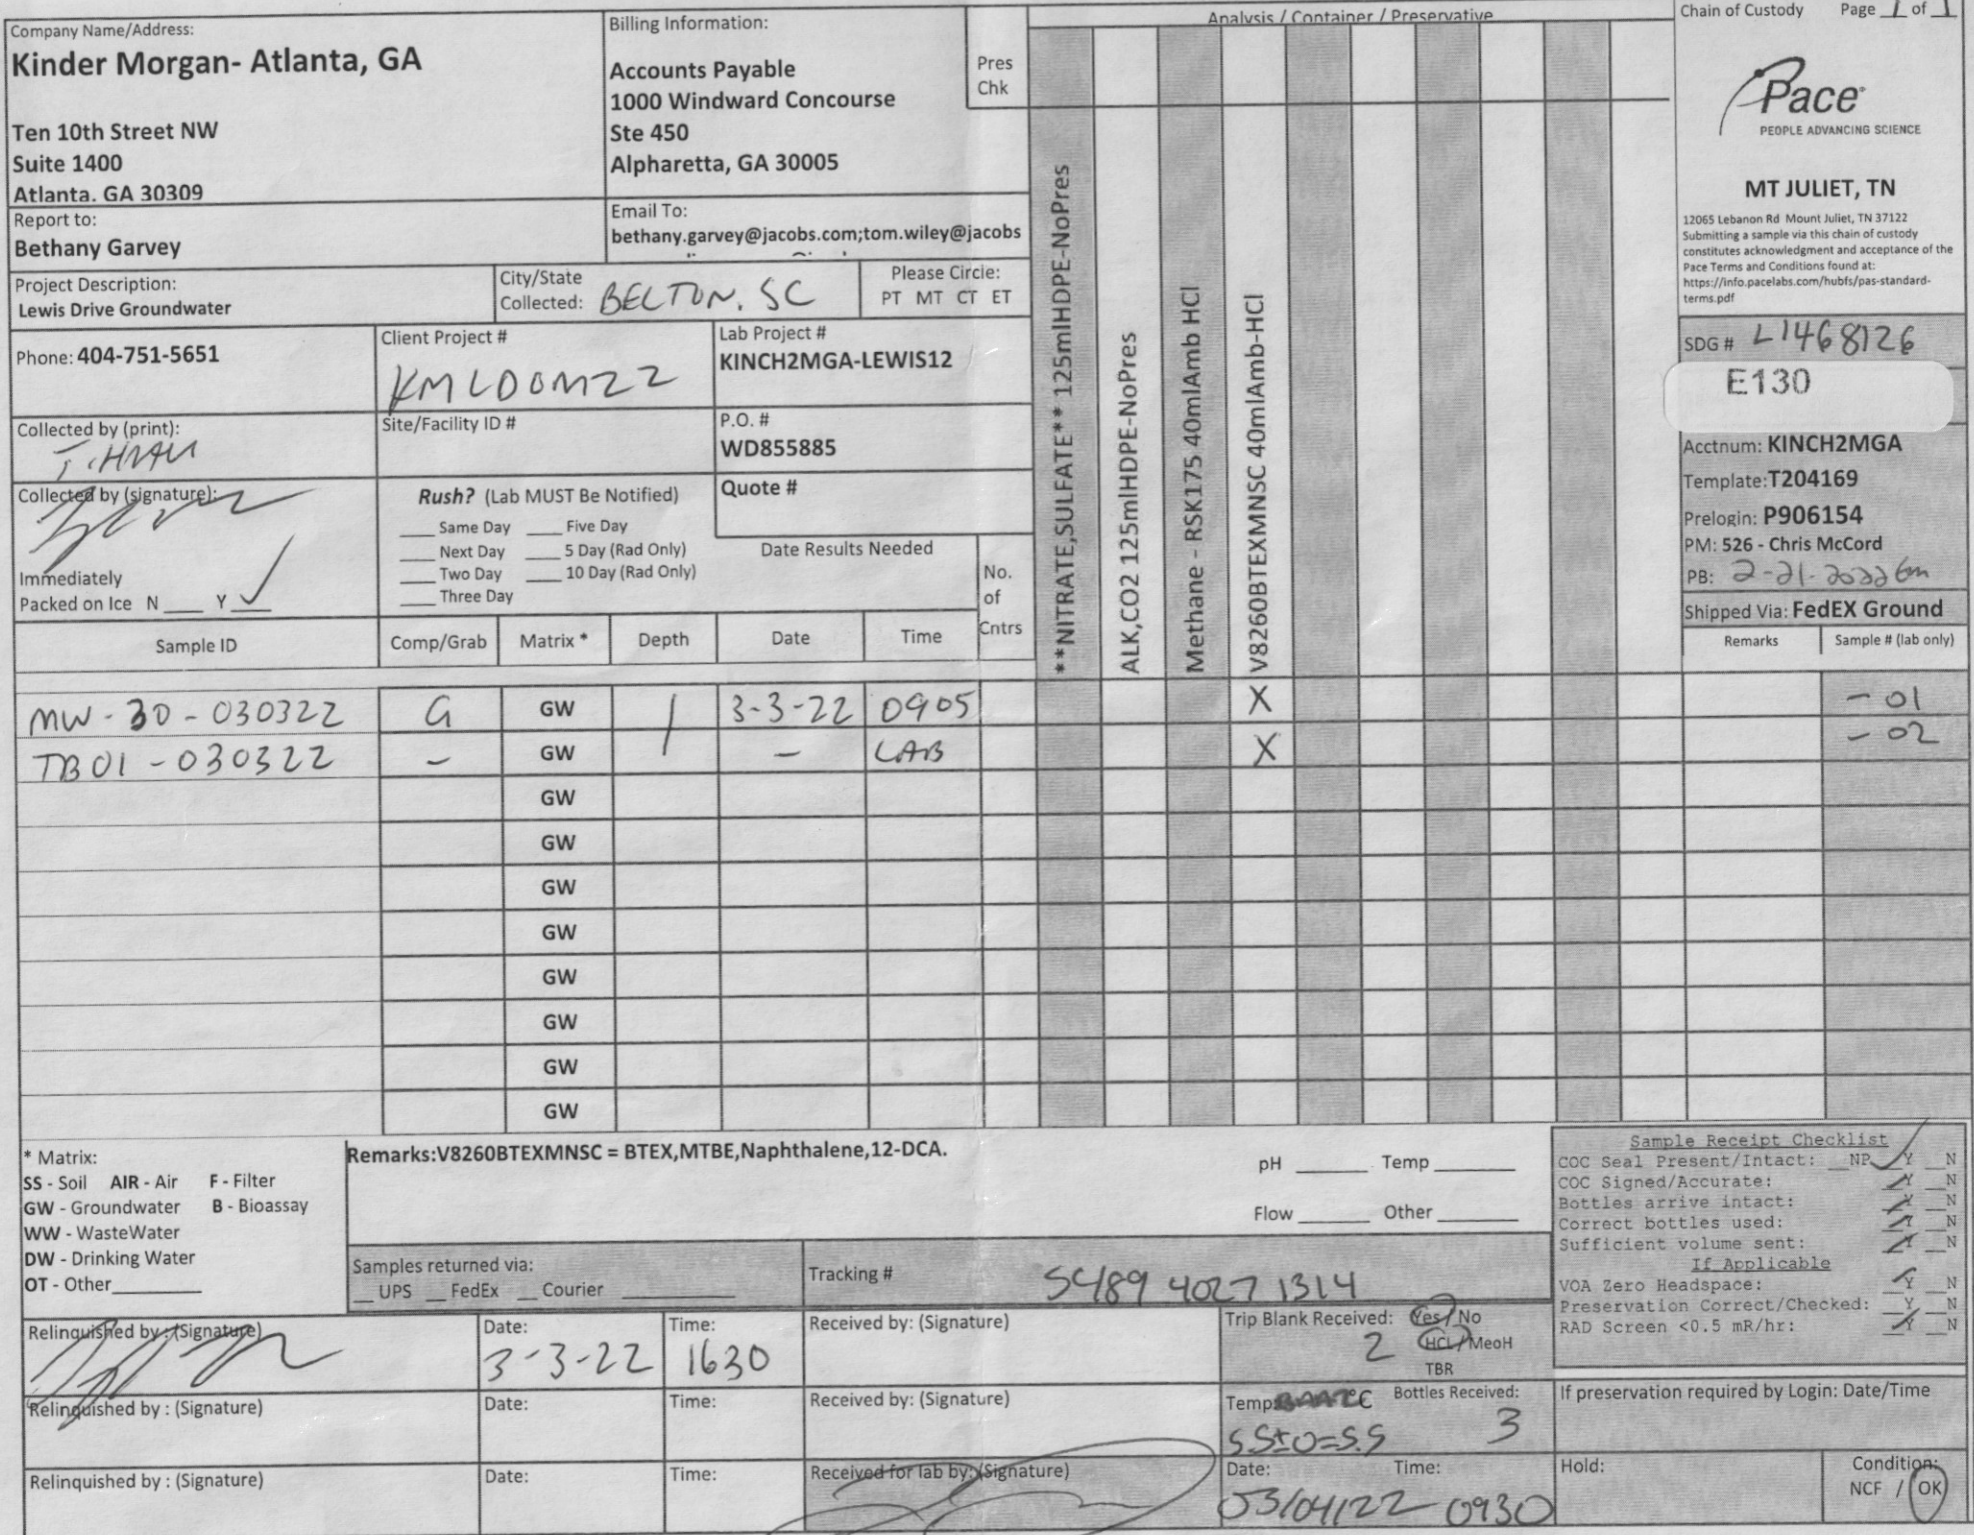 Company Name/Address:
Kinder Morgan- Atlanta, GA
Ten 10th Street NW
Suite 1400
Atlanta. GA 30309
Billing Information:
Accounts Payable
1000 Windward Concourse
Ste 450
Alpharetta, GA 30005
Pres
Chk
Analysis / Container / Preservative
Chain of Custody Page 1 of 1
Pace
PEOPLE ADVANCING SCIENCE
MT JULIET, TN
12065 Lebanon Rd Mount Juliet, TN 37122
Submitting a sample via this chain of custody
constitutes acknowledgment and acceptance of the
Pace Terms and Conditions found at:
https://info.pacelabs.com/hubfs/pas-standard-
terms.pdf
Report to:
Bethany Garvey
Email To:
bethany.garvey@jacobs.com;tom.wiley@jacobs
Project Description:
Lewis Drive Groundwater
City/State
Collected: BELTON, SC
Please Circle:
PT MT CT ET
Phone: 404-751-5651
Client Project #
KMLDOM22
Lab Project #
KINCH2MGA-LEWIS12
Collected by (print):
Site/Facility ID #
P.O. #
WD855885
Collected by (signature):
Immediately
Packed on Ice N ___ Y ✓
Rush? (Lab MUST Be Notified)
___ Same Day ___ Five Day
___ Next Day ___ 5 Day (Rad Only)
___ Two Day ___ 10 Day (Rad Only)
___ Three Day
Quote #
Date Results Needed
No.
of
Cntrs
**NITRATE,SULFATE** 125mlHDPE-NoPres
ALK,CO2 125mlHDPE-NoPres
Methane - RSK175 40mlAmb HCl
V8260BTEXMNSC 40mlAmb-HCl
SDG # L1468126
E130
Acctnum: KINCH2MGA
Template:T204169
Prelogin: P906154
PM: 526 - Chris McCord
PB: 2-21-2022
Shipped Via: FedEX Ground
Sample ID Comp/Grab Matrix * Depth Date Time Remarks Sample # (lab only)
MW-30-030322 G GW 3-3-22 0905 X -01
TB01-030322 - GW - LAB X -02
GW
GW
GW
GW
GW
GW
GW
GW
* Matrix:
SS - Soil AIR - Air F - Filter
GW - Groundwater B - Bioassay
WW - WasteWater
DW - Drinking Water
OT - Other
Remarks:V8260BTEXMNSC = BTEX,MTBE,Naphthalene,12-DCA.
pH ___ Temp ___
Flow ___ Other ___
Samples returned via:
__ UPS __ FedEx __ Courier
Tracking # 5489 4027 1314
Sample Receipt Checklist
COC Seal Present/Intact: __NP ✓Y __N
COC Signed/Accurate: ✓Y __N
Bottles arrive intact: ✓Y __N
Correct bottles used: ✓Y __N
Sufficient volume sent: ✓Y __N
If Applicable
VOA Zero Headspace: ✓Y __N
Preservation Correct/Checked: __Y __N
RAD Screen <0.5 mR/hr: ✓Y __N
Relinquished by : (Signature)
Date:
3-3-22
Time:
1630
Received by: (Signature)
Trip Blank Received: Yes / No
2 HCL / MeoH
TBR
Relinquished by : (Signature)
Date:
Time:
Received by: (Signature)
Temp: °C
5.5±0=5.5
Bottles Received:
3
If preservation required by Login: Date/Time
Relinquished by : (Signature)
Date:
Time:
Received for lab by: (Signature)
Date:
03/04/22
Time:
0930
Hold:
Condition:
NCF / OK